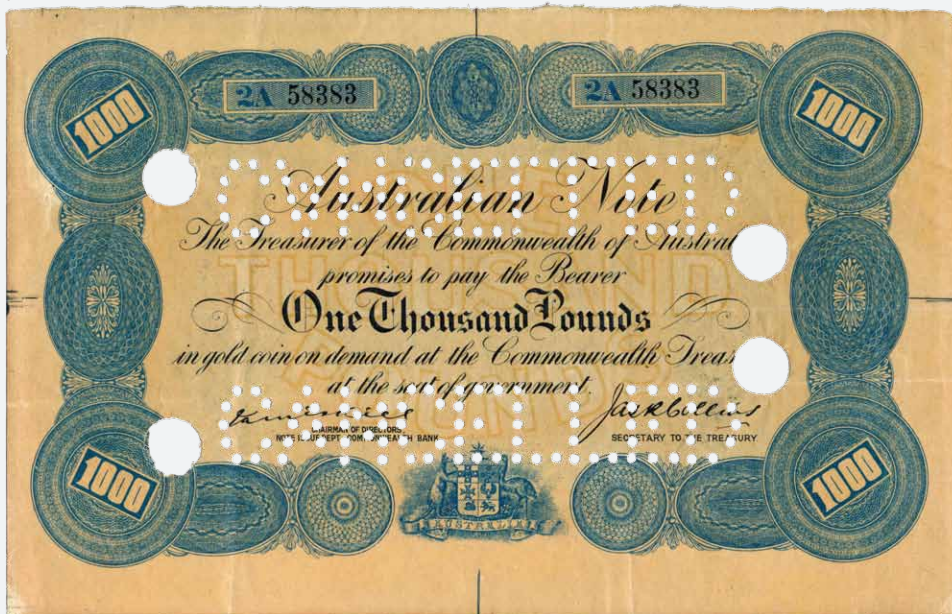 1000 2A 58383 2A 58383 1000
CANCELLED
Australian Note
ONE
The Treasurer of the Commonwealth of Austral
promises to pay the Bearer
THOUSAND
One Thousand Pounds
in gold coin on demand at the Commonwealth Treas
at the seat of government.
POUNDS
CANCELLED
Jas R Collins
CHAIRMAN OF DIRECTORS,
NOTE ISSUE DEPT. COMMONWEALTH BANK
SECRETARY TO THE TREASURY
1000 1000
AUSTRALIA